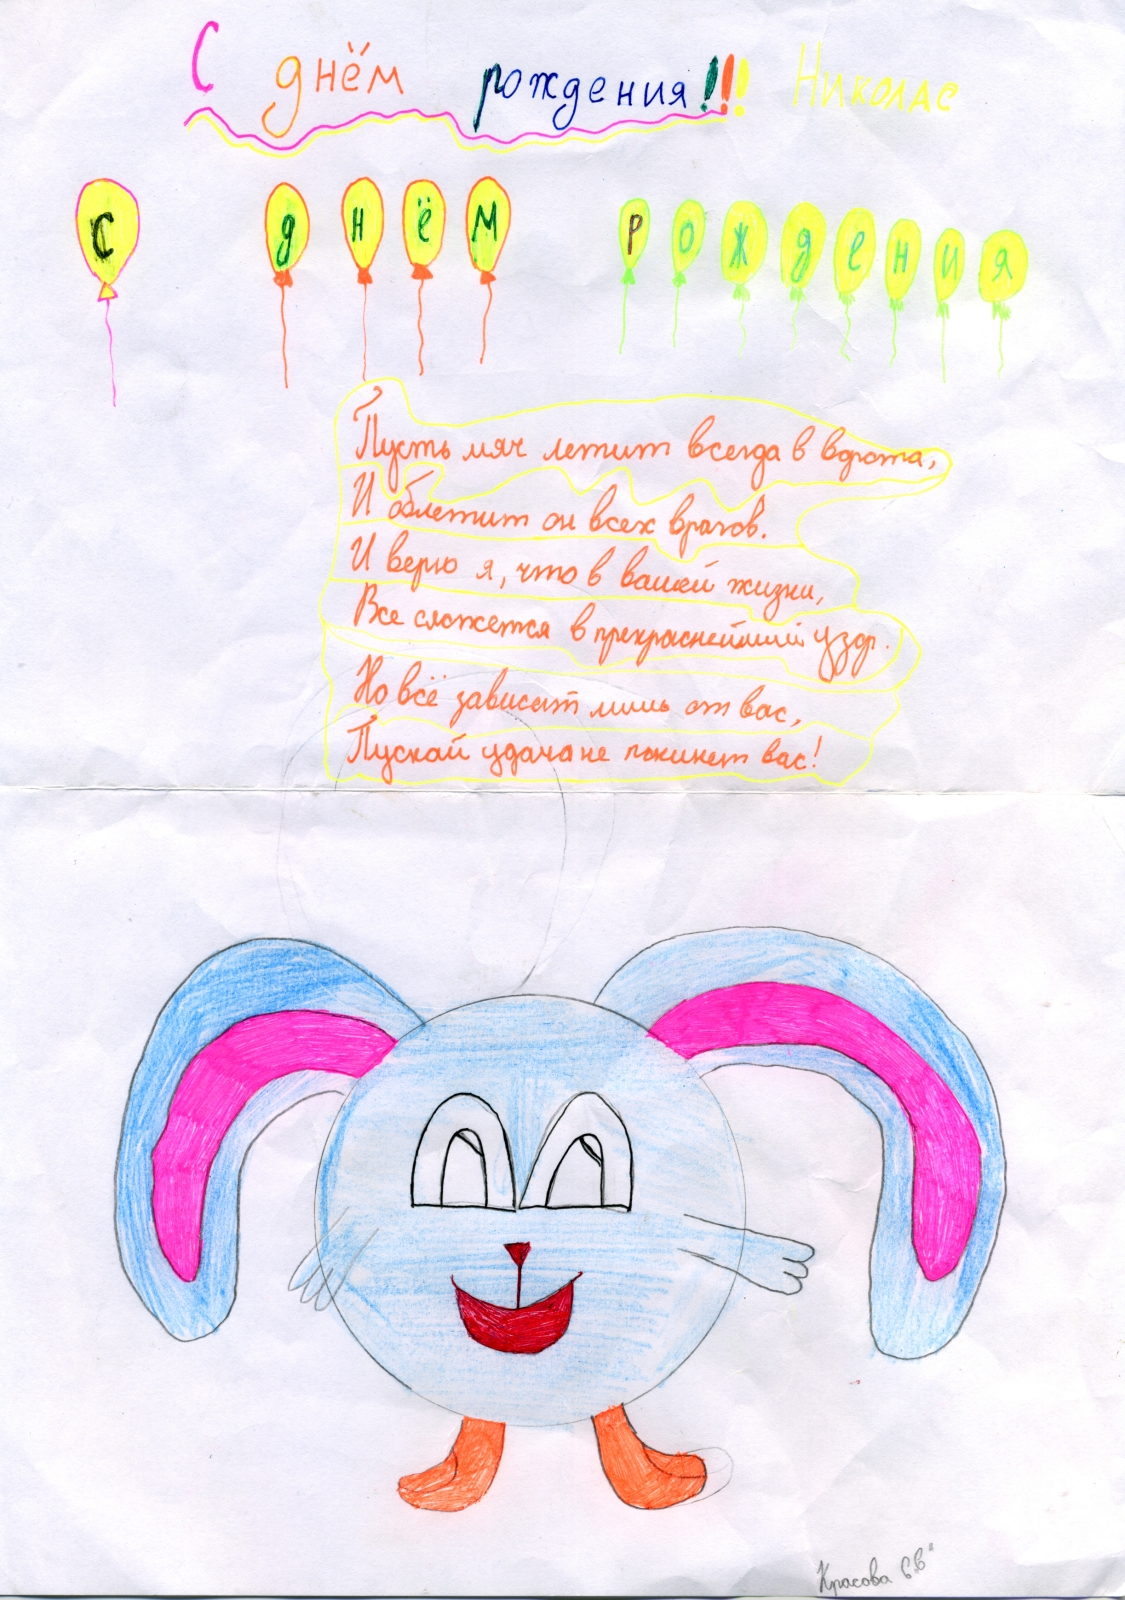 С днём рождения!!! Николас
С днём рождения
Пусть мяч летит всегда в ворота,
И облетит он всех врагов.
И верю я, что в вашей жизни,
Все сложется в прекраснейший узор.
Но всё зависит лишь от вас,
Пускай удача не покинет вас!
Красова 6 "В"